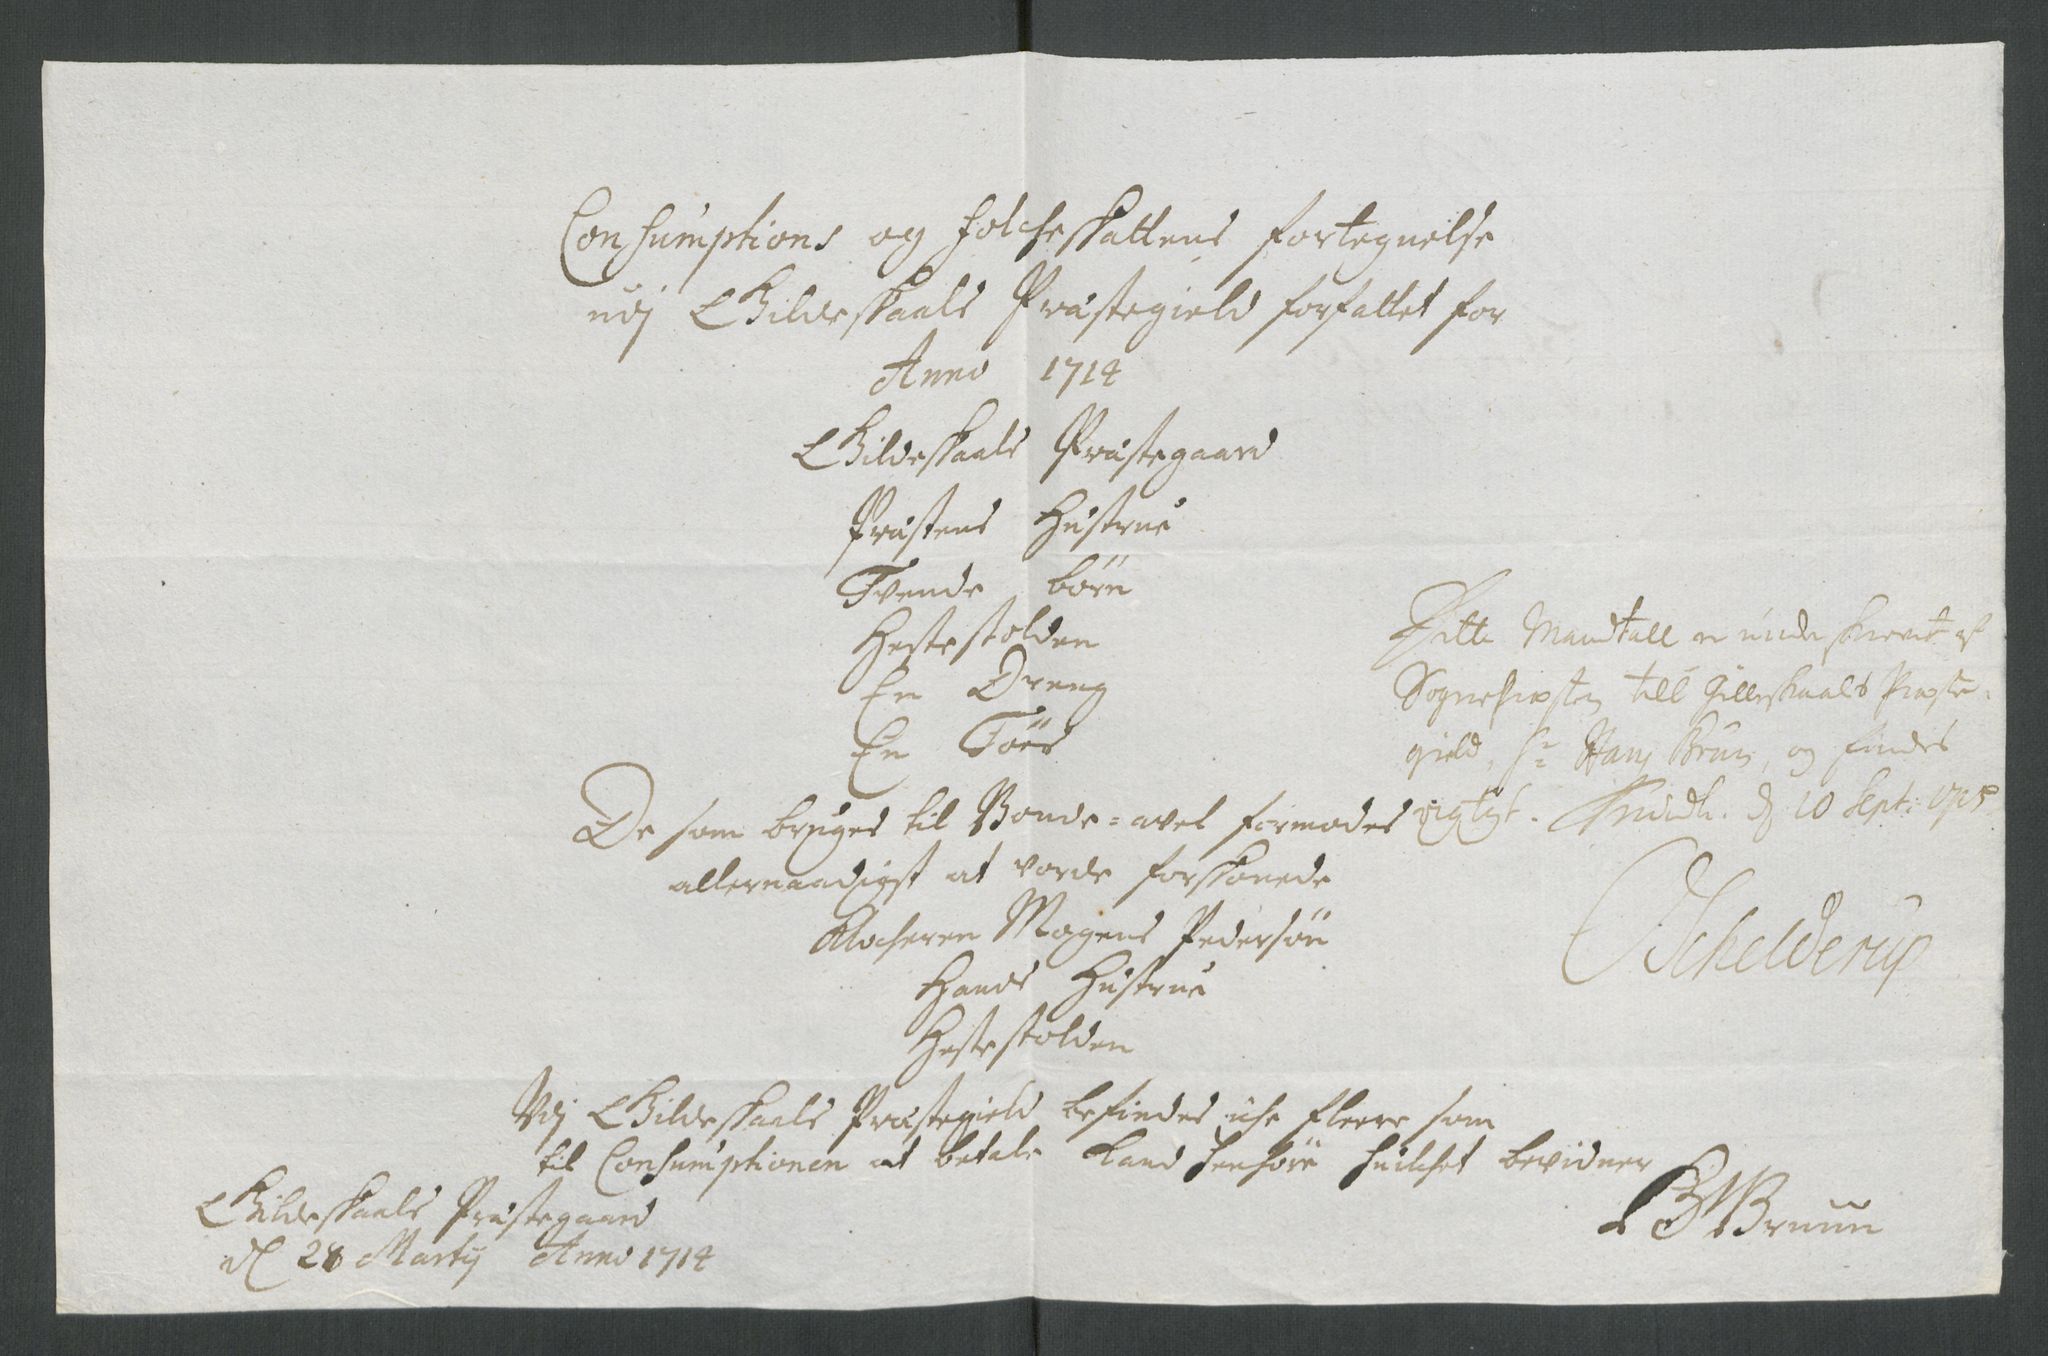 Consumptions og Folcheskattens fortegnelse
udj Gildeskaals Præstegield forfattet for
Anno 1714
Gildeskaals Præstegaard
Præstens Hustrue
Tvende börn
Hestestolden
En Dreng
En Töes
De som bruges til Bonde-avel formodes
allernaadigst at vorde forskonede
Klocheren Mogens Pedersön
Hands Hustrue
Hestestolden
Udj Gildeskaals Præstegield befindes iche fleere som
til Consumptionen at betale kand henhöre huilchet bevidner
Gildeskaals Præstegaard
d 28 Martij Anno 1714
HBruun
Dette Mandtall er underskrevet af
Sognepresten till Gilleskaals Præste-
gield, Hr Hans Brun, og findes
rigtigt. d 10 Sept: 1715
Schelderup